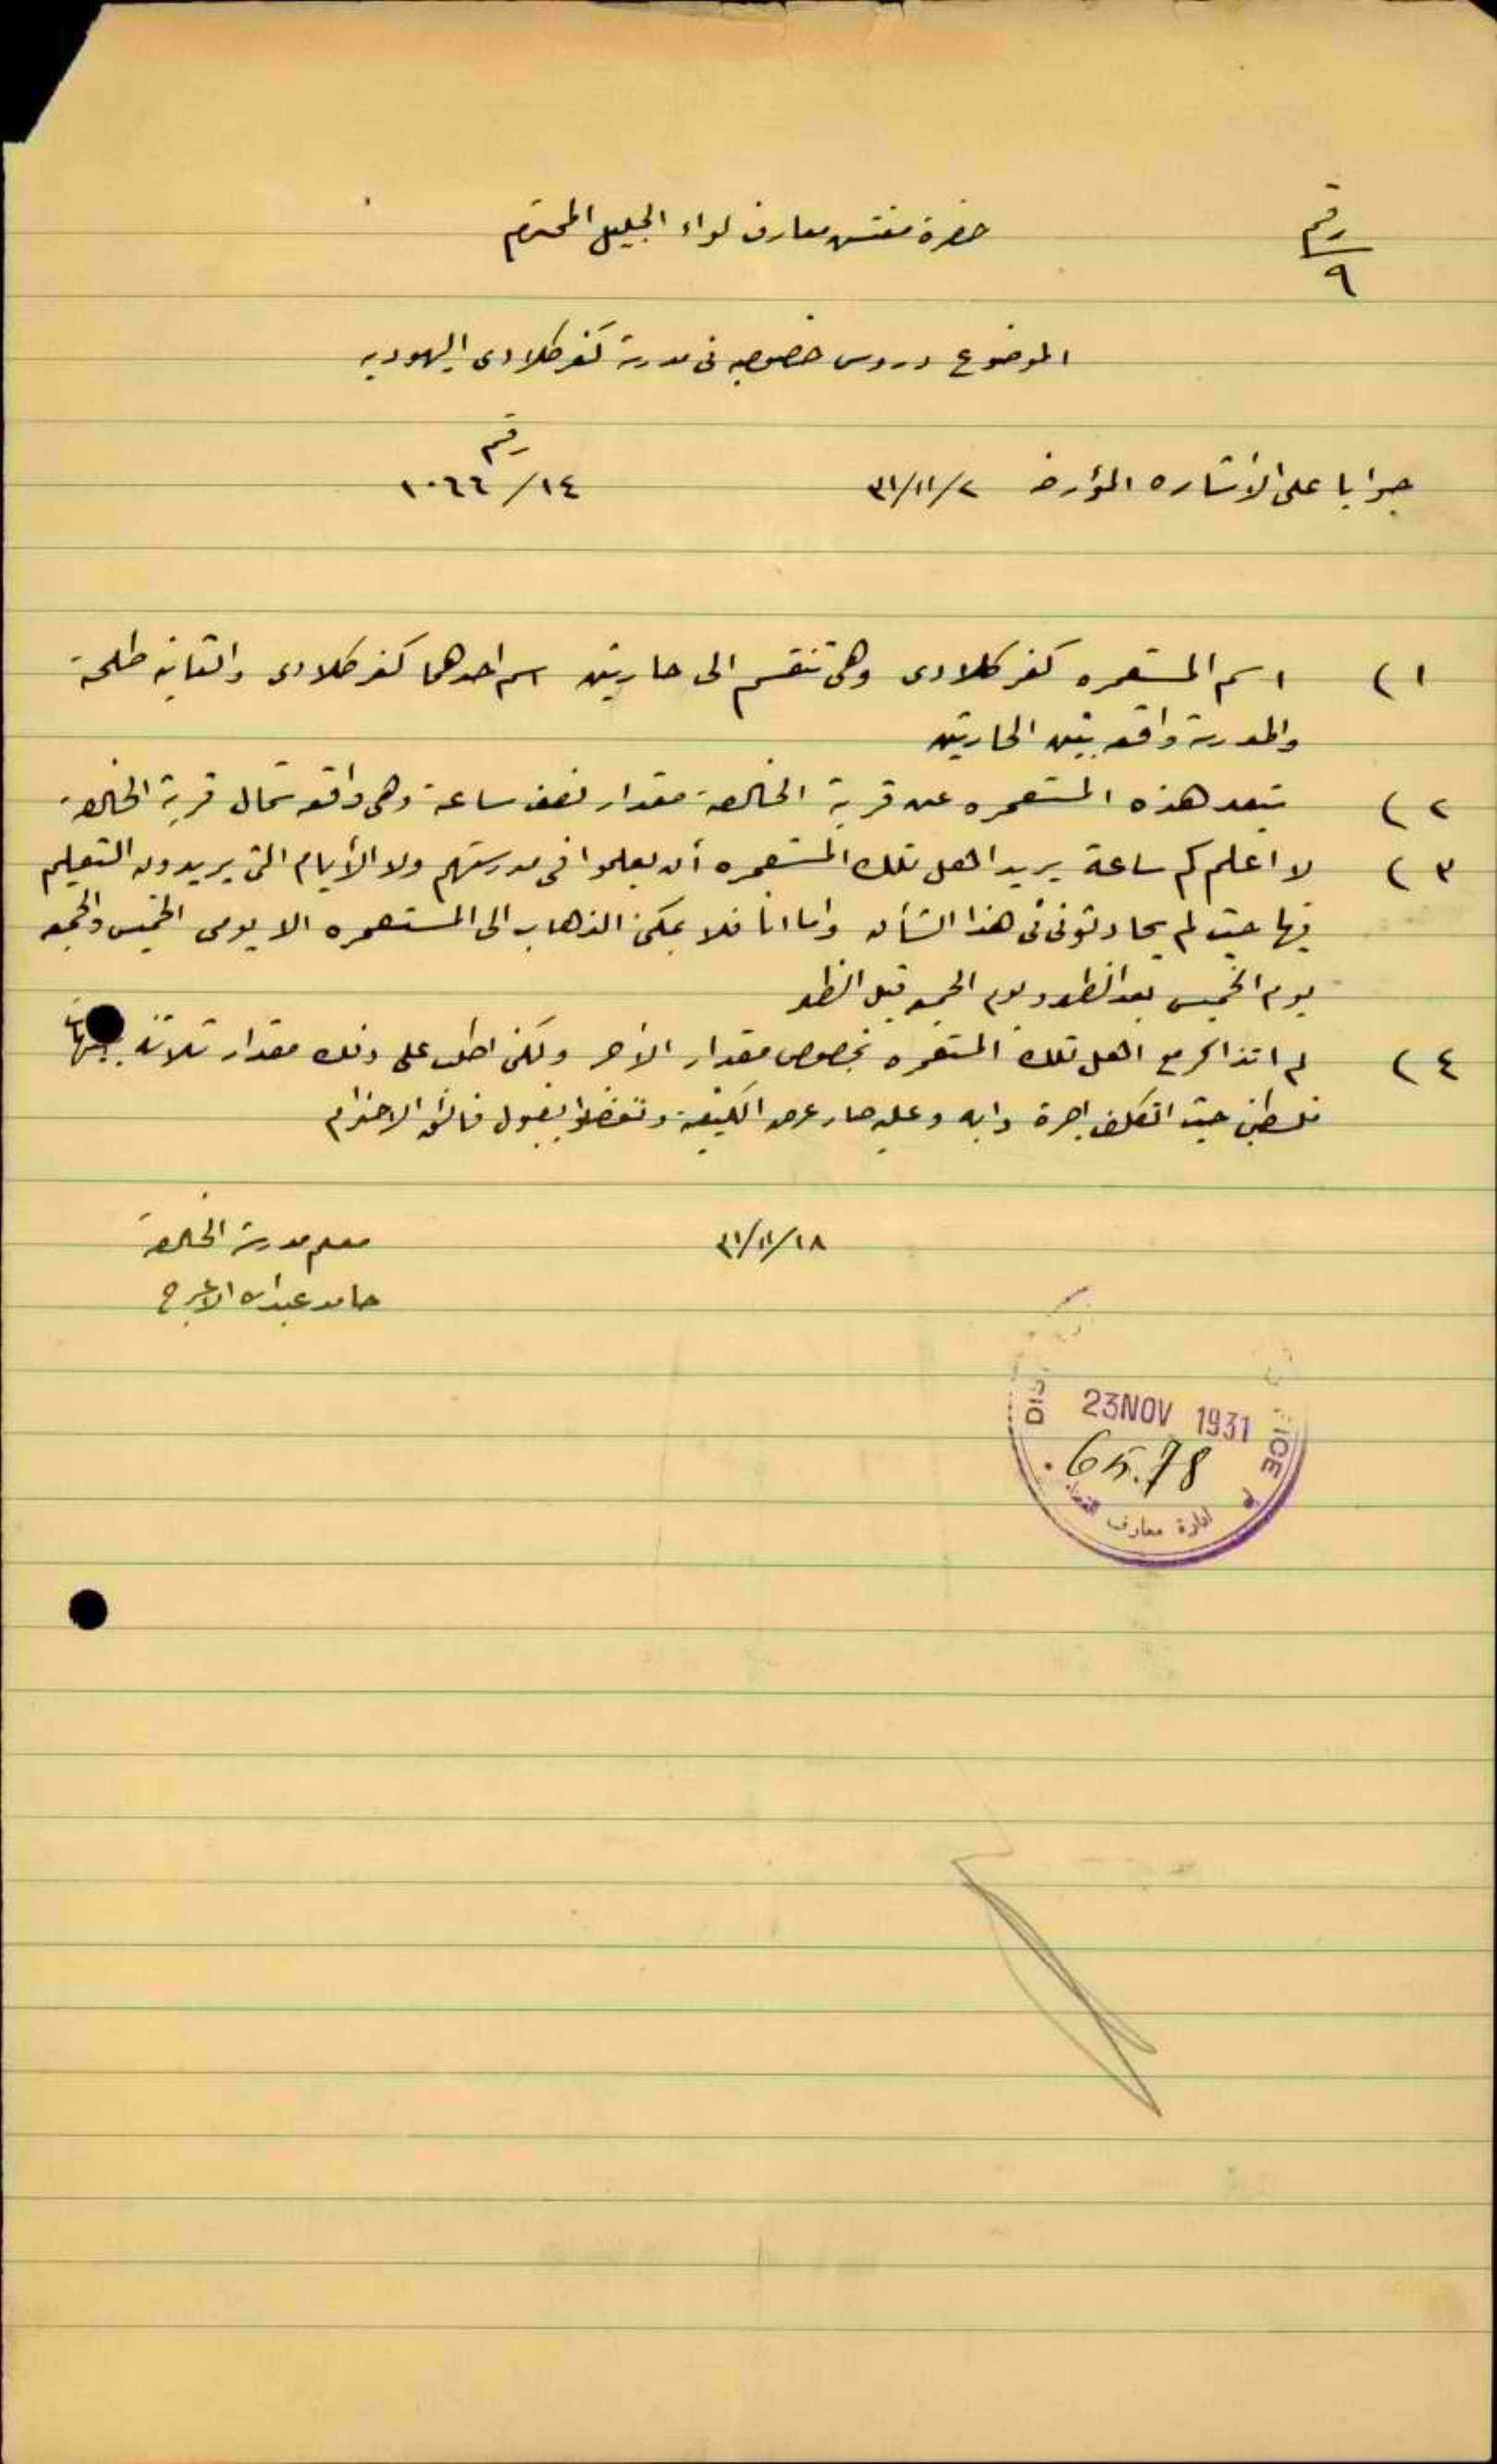 رقم
٩
حضرة مفتش معارف لواء الجليل المحترم
الموضوع دروس خصوصيه في مدرسة كفر كلادى اليهوديه
رقم
جوابا على الاشاره المؤرخه ٣١/١١/٢ ١٠٦٦/١٤
١) اسم المستعمره كفر كلادى وهي تنقسم الى حارتين اسم احدهما كفر كلادى والثانيه طلحة
والمدرسة واقعه بين الحارتين
٢) تبعد هذه المستعمره عن قرية الخالصة مقدار نصف ساعة وهي واقعه شمال قرية الخالصة
٣) لا اعلم كم ساعة يريد اهل تلك المستعمره أن يعلموا في مدرستهم ولا الأيام التي يريدون التعليم
فيها حيث لم يحادثوني في هذا الشأن واما انا فلا يمكن الذهاب الى المستعمره الا يومي الخميس والجمعه
يوم الخميس بعد الظهر ويوم الجمعه قبل الظهر
٤) لم اتذاكر مع اهل تلك المستعمره بخصوص مقدار الأجر ولكني اطلب على ذلك مقدار ثلاثة جنيهات
فلسطيني حيث اتكلف اجرة دابه وعليه صار عرض الكيفية وتفضلوا بقبول فائق الاحترام
٣١/١١/١٨ معلم مدرسة الخالصة
حامد عبدالله الاعرج
23 NOV 1931
ادارة معارف